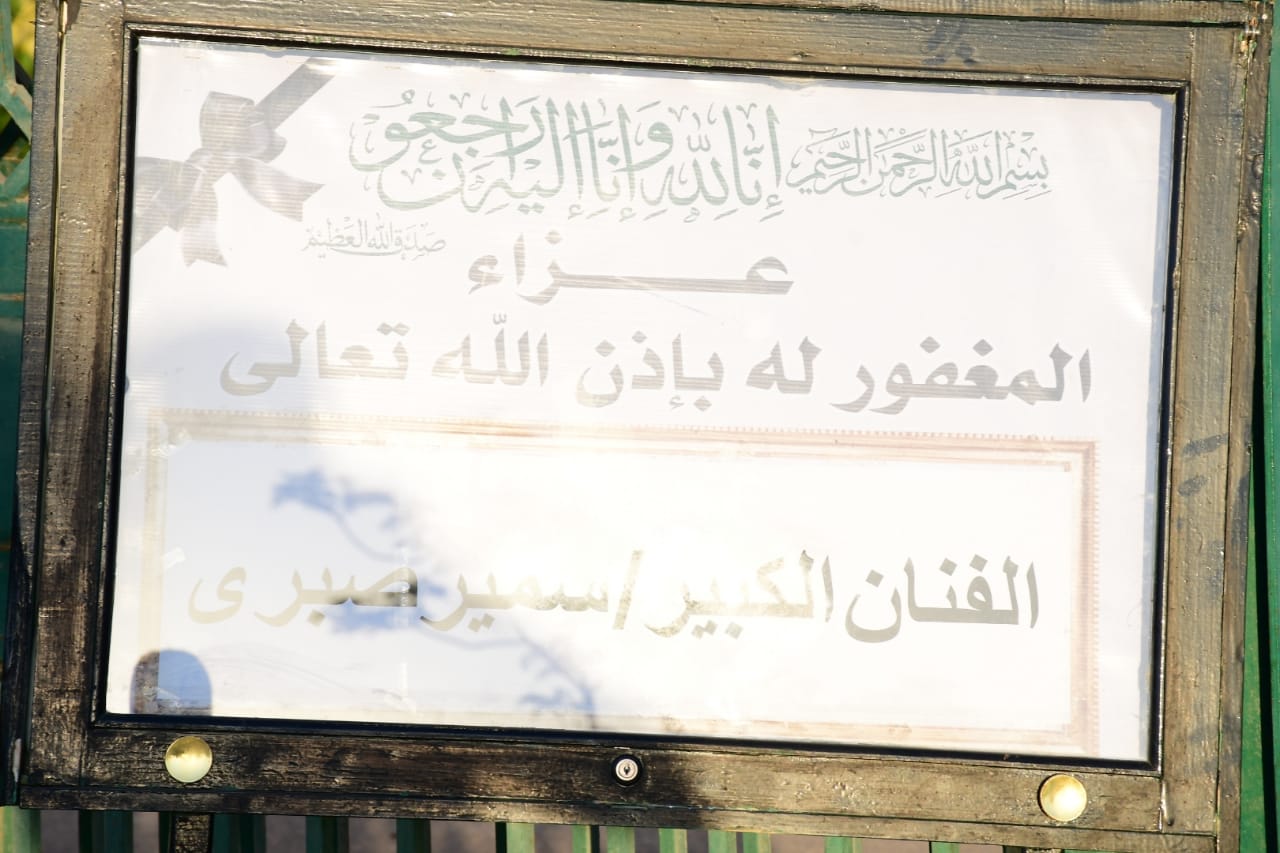 بسم الله الرحمن الرحيم إنا لله وإنا إليه راجعون
صدق الله العظيم
عزاء
المغفور له بإذن الله تعالى
الفنان الكبير/سمير صبرى